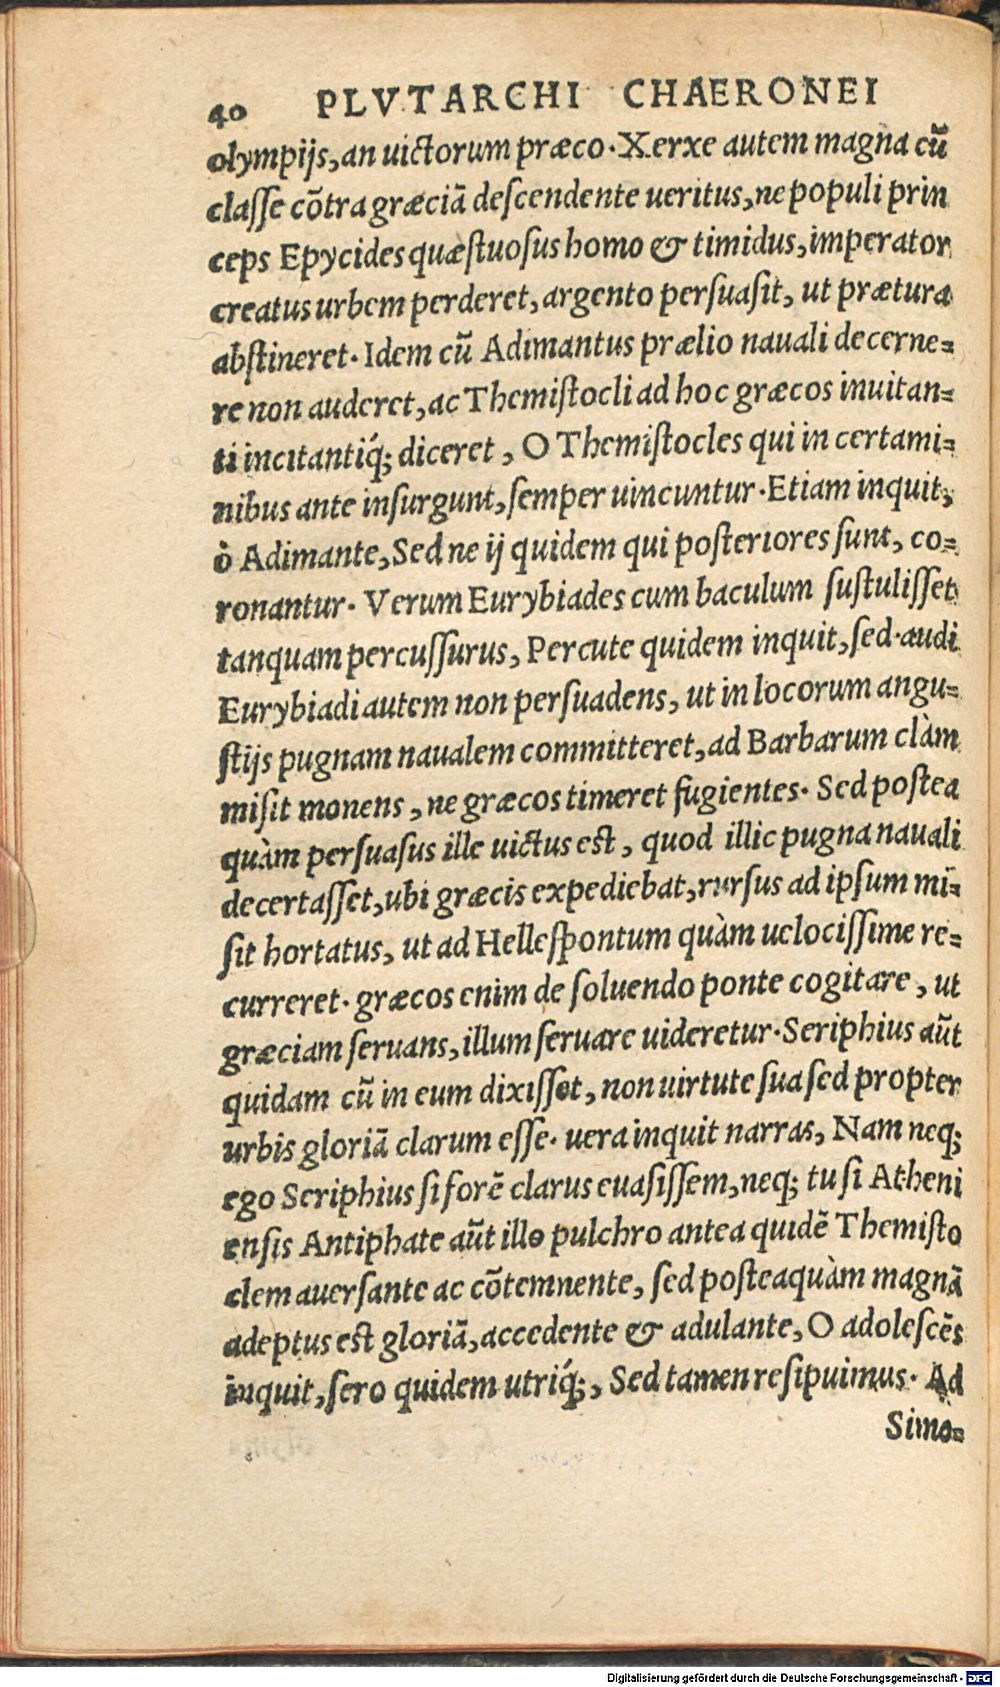 40 PLVTARCHI CHAERONEI
olympijs, an uictorum præco. Xerxe autem magna cū
classe cōtra græciā descendente ueritus, ne populi prin
ceps Epycides quæstuosus homo & timidus, imperator
creatus urbem perderet, argento persuasit, ut prætura
abstineret. Idem cū Adimantus prælio nauali decerne=
re non auderet, ac Themistocli ad hoc græcos inuitan=
ti incitantiq́; diceret, O Themistocles qui in certami=
nibus ante insurgunt, semper uincuntur. Etiam inquit,
ò Adimante, Sed ne ij quidem qui posteriores sunt, co=
ronantur. Verum Eurybiades cum baculum sustulisset
tanquam percussurus, Percute quidem inquit, sed audi
Eurybiadi autem non persuadens, ut in locorum angu=
stijs pugnam naualem committeret, ad Barbarum clàm
misit monens, ne græcos timeret fugientes. Sed postea
quàm persuasus ille uictus est, quod illic pugna nauali
decertasset, ubi græcis expediebat, rursus ad ipsum mi=
sit hortatus, ut ad Hellespontum quàm uelocissime re=
curreret. græcos enim de soluendo ponte cogitare, ut
græciam seruans, illum seruare uideretur. Seriphius aūt
quidam cū in eum dixisset, non uirtute sua sed propter
urbis gloriā clarum esse. uera inquit narras, Nam neq;
ego Seriphius si forē clarus euasissem, neq; tu si Atheni
ensis Antiphate aūt illo pulchro antea quidē Themisto
clem auersante ac cōtemnente, sed posteaquàm magnā
adeptus est gloriā, accedente & adulante, O adolescēs
inquit, sero quidem utriq́;, Sed tamen resipuimus. Ad
Simo=
Digitalisierung gefördert durch die Deutsche Forschungsgemeinschaft - DFG